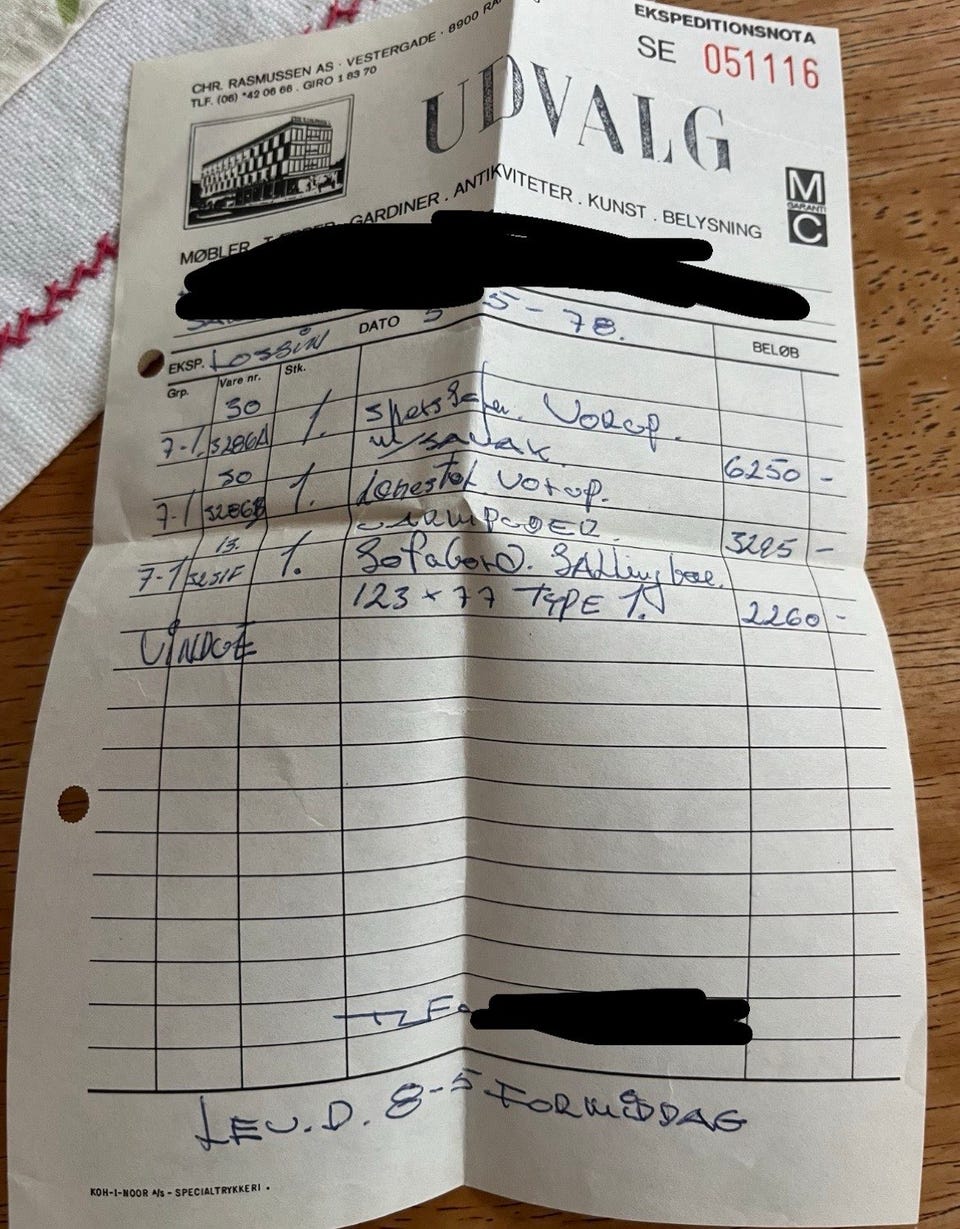 EKSPEDITIONSNOTA
SE 051116
CHR. RASMUSSEN AS · VESTERGADE · 8900
TLF. (06) *42 06 66 . GIRO 1 83 70
UDVALG
M
GARANTI
C
MØBLER . GARDINER . ANTIKVITETER . KUNST . BELYSNING
EKSP. LOSSIN DATO 5-5-78.
BELØB
Grp. Vare nr. Stk.
30
7-1 3286A 1. Vorup.
6250 -
30
7-1 3286B 1. Vorup.
3295 -
13.
7-1 1. Sofabord. Sallingboe.
123 x 77 TYPE 2260 -
TLF
LEV. D. 8-5 FORMIDDAG
KOH-I-NOOR A/S - SPECIALTRYKKERI .